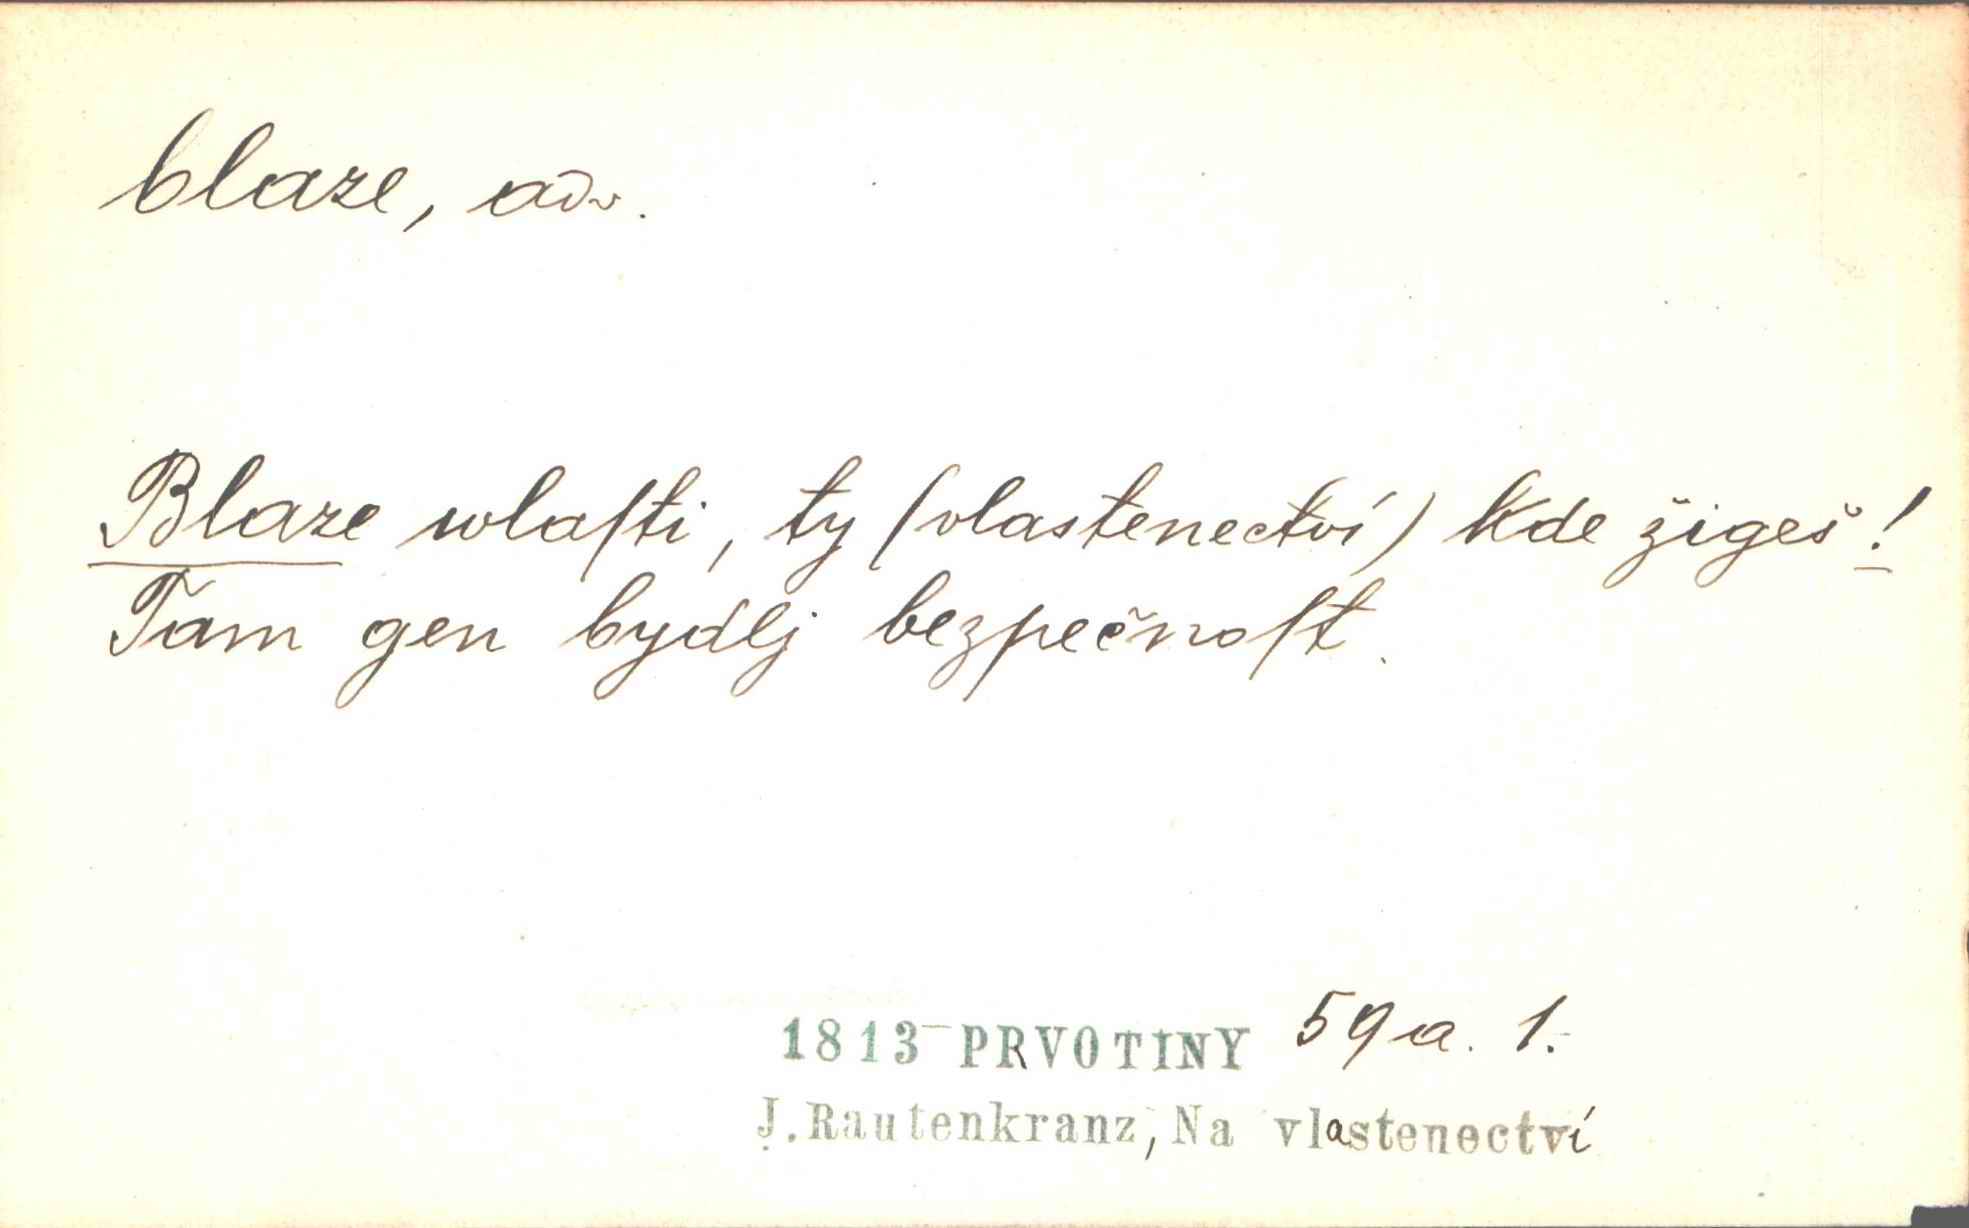 blaze, adv.
Blaze wlaſti, ty (vlastenectví) kde žigeš!
Tam gen bydlj bezpečnoſt.
1813 PRVOTINY 59a. 1.
J. Rautenkranz, Na vlastenectví